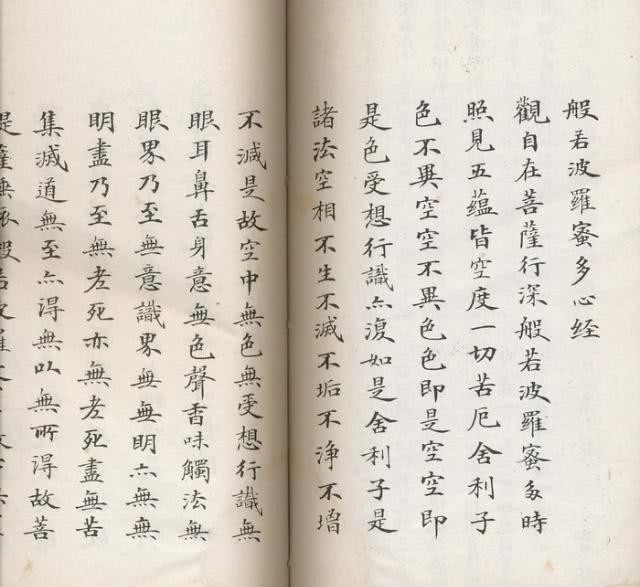 般若波羅蜜多心经
觀自在菩薩行深般若波羅蜜多時
照見五蘊皆空度一切苦厄舍利子
色不異空空不異色色即是空空即
是色受想行識亦復如是舍利子是
諸法空相不生不滅不垢不浄不增
不減是故空中無色無受想行識無
眼耳鼻舌身意無色聲香味觸法無
眼界乃至無意識界無無明亦無無
明盡乃至無老死亦無老死盡無苦
集滅道無至亦得無以無所得故菩